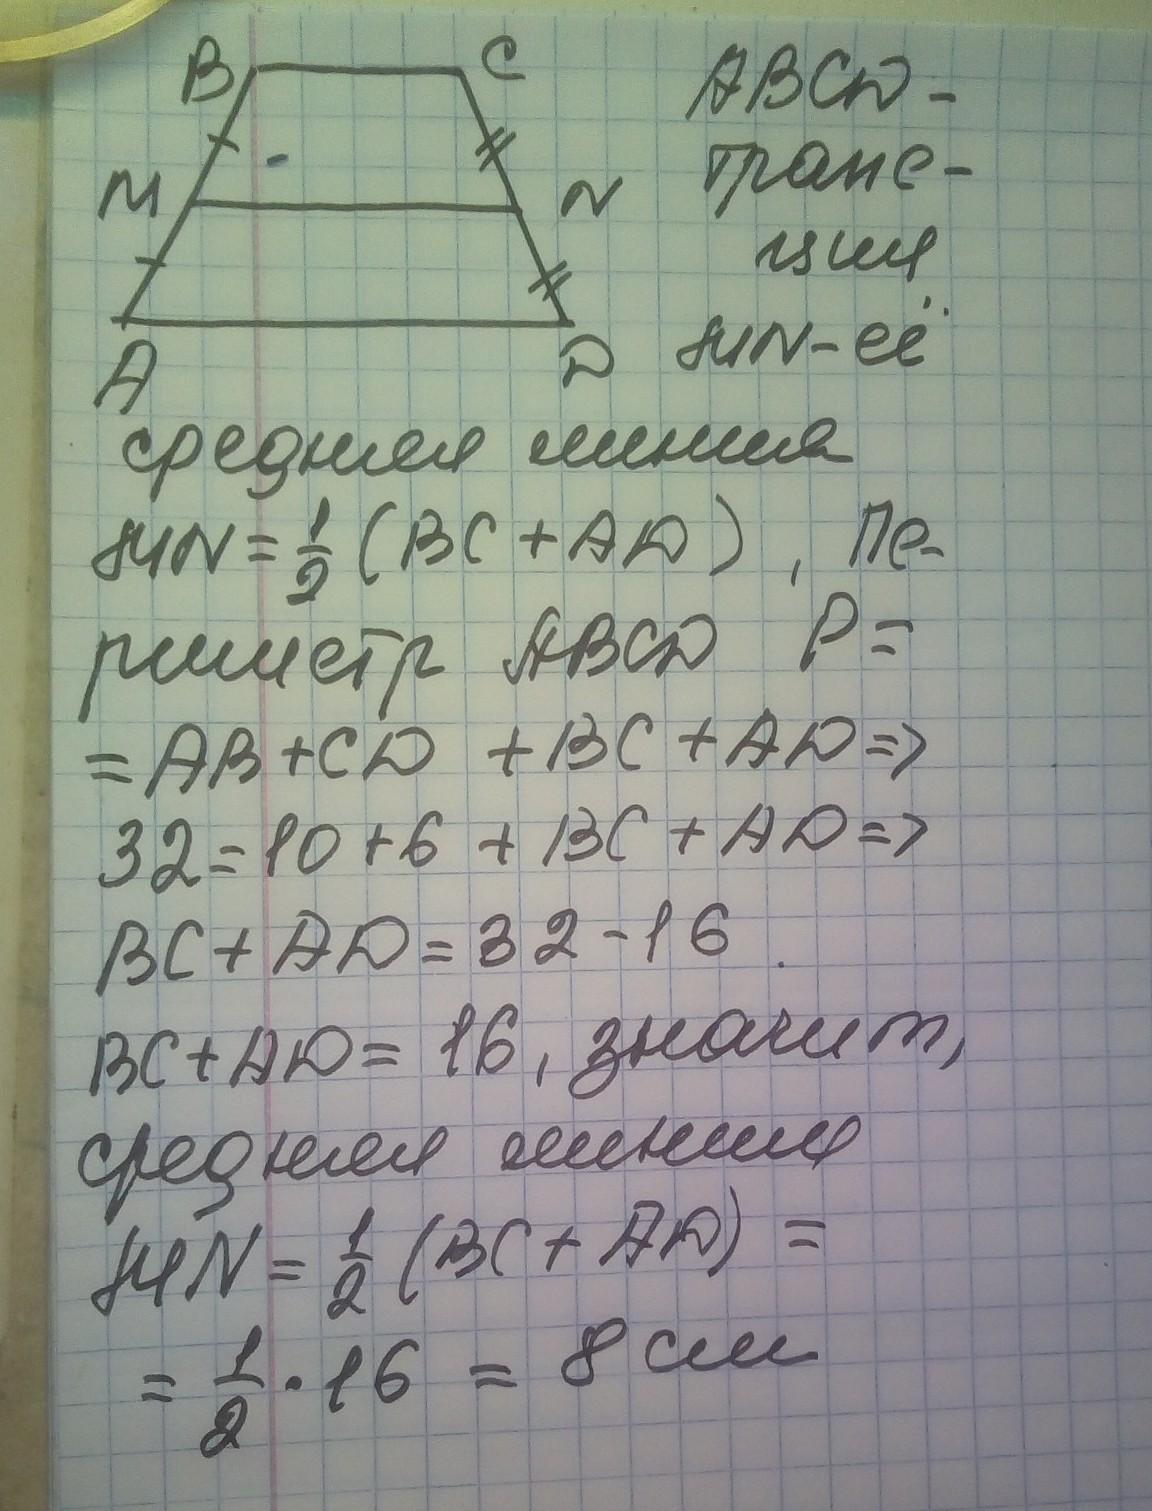 B C
M N
A D
ABCD -
трапе-
ция
MN - её
средняя линия
MN = 1/2 (BC + AD) , Пе-
риметр ABCD P =
= AB + CD + BC + AD =>
32 = 10 + 6 + BC + AD =>
BC + AD = 32 - 16 .
BC + AD = 16, значит,
средняя линия
MN = 1/2 (BC + AD) =
= 1/2 · 16 = 8 см